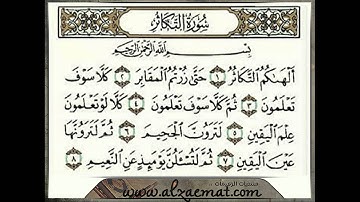 سُورَةُ التَّكَاثُرِ
بِسْمِ اللَّهِ الرَّحْمَٰنِ الرَّحِيمِ
أَلْهَىٰكُمُ التَّكَاثُرُ ١ حَتَّىٰ زُرْتُمُ الْمَقَابِرَ ٢ كَلَّا سَوْفَ
تَعْلَمُونَ ٣ ثُمَّ كَلَّا سَوْفَ تَعْلَمُونَ ٤ كَلَّا لَوْ تَعْلَمُونَ
عِلْمَ الْيَقِينِ ٥ لَتَرَوُنَّ الْجَحِيمَ ٦ ثُمَّ لَتَرَوُنَّهَا
عَيْنَ الْيَقِينِ ٧ ثُمَّ لَتُسْأَلُنَّ يَوْمَئِذٍ عَنِ النَّعِيمِ ٨
www.alzaemat.com